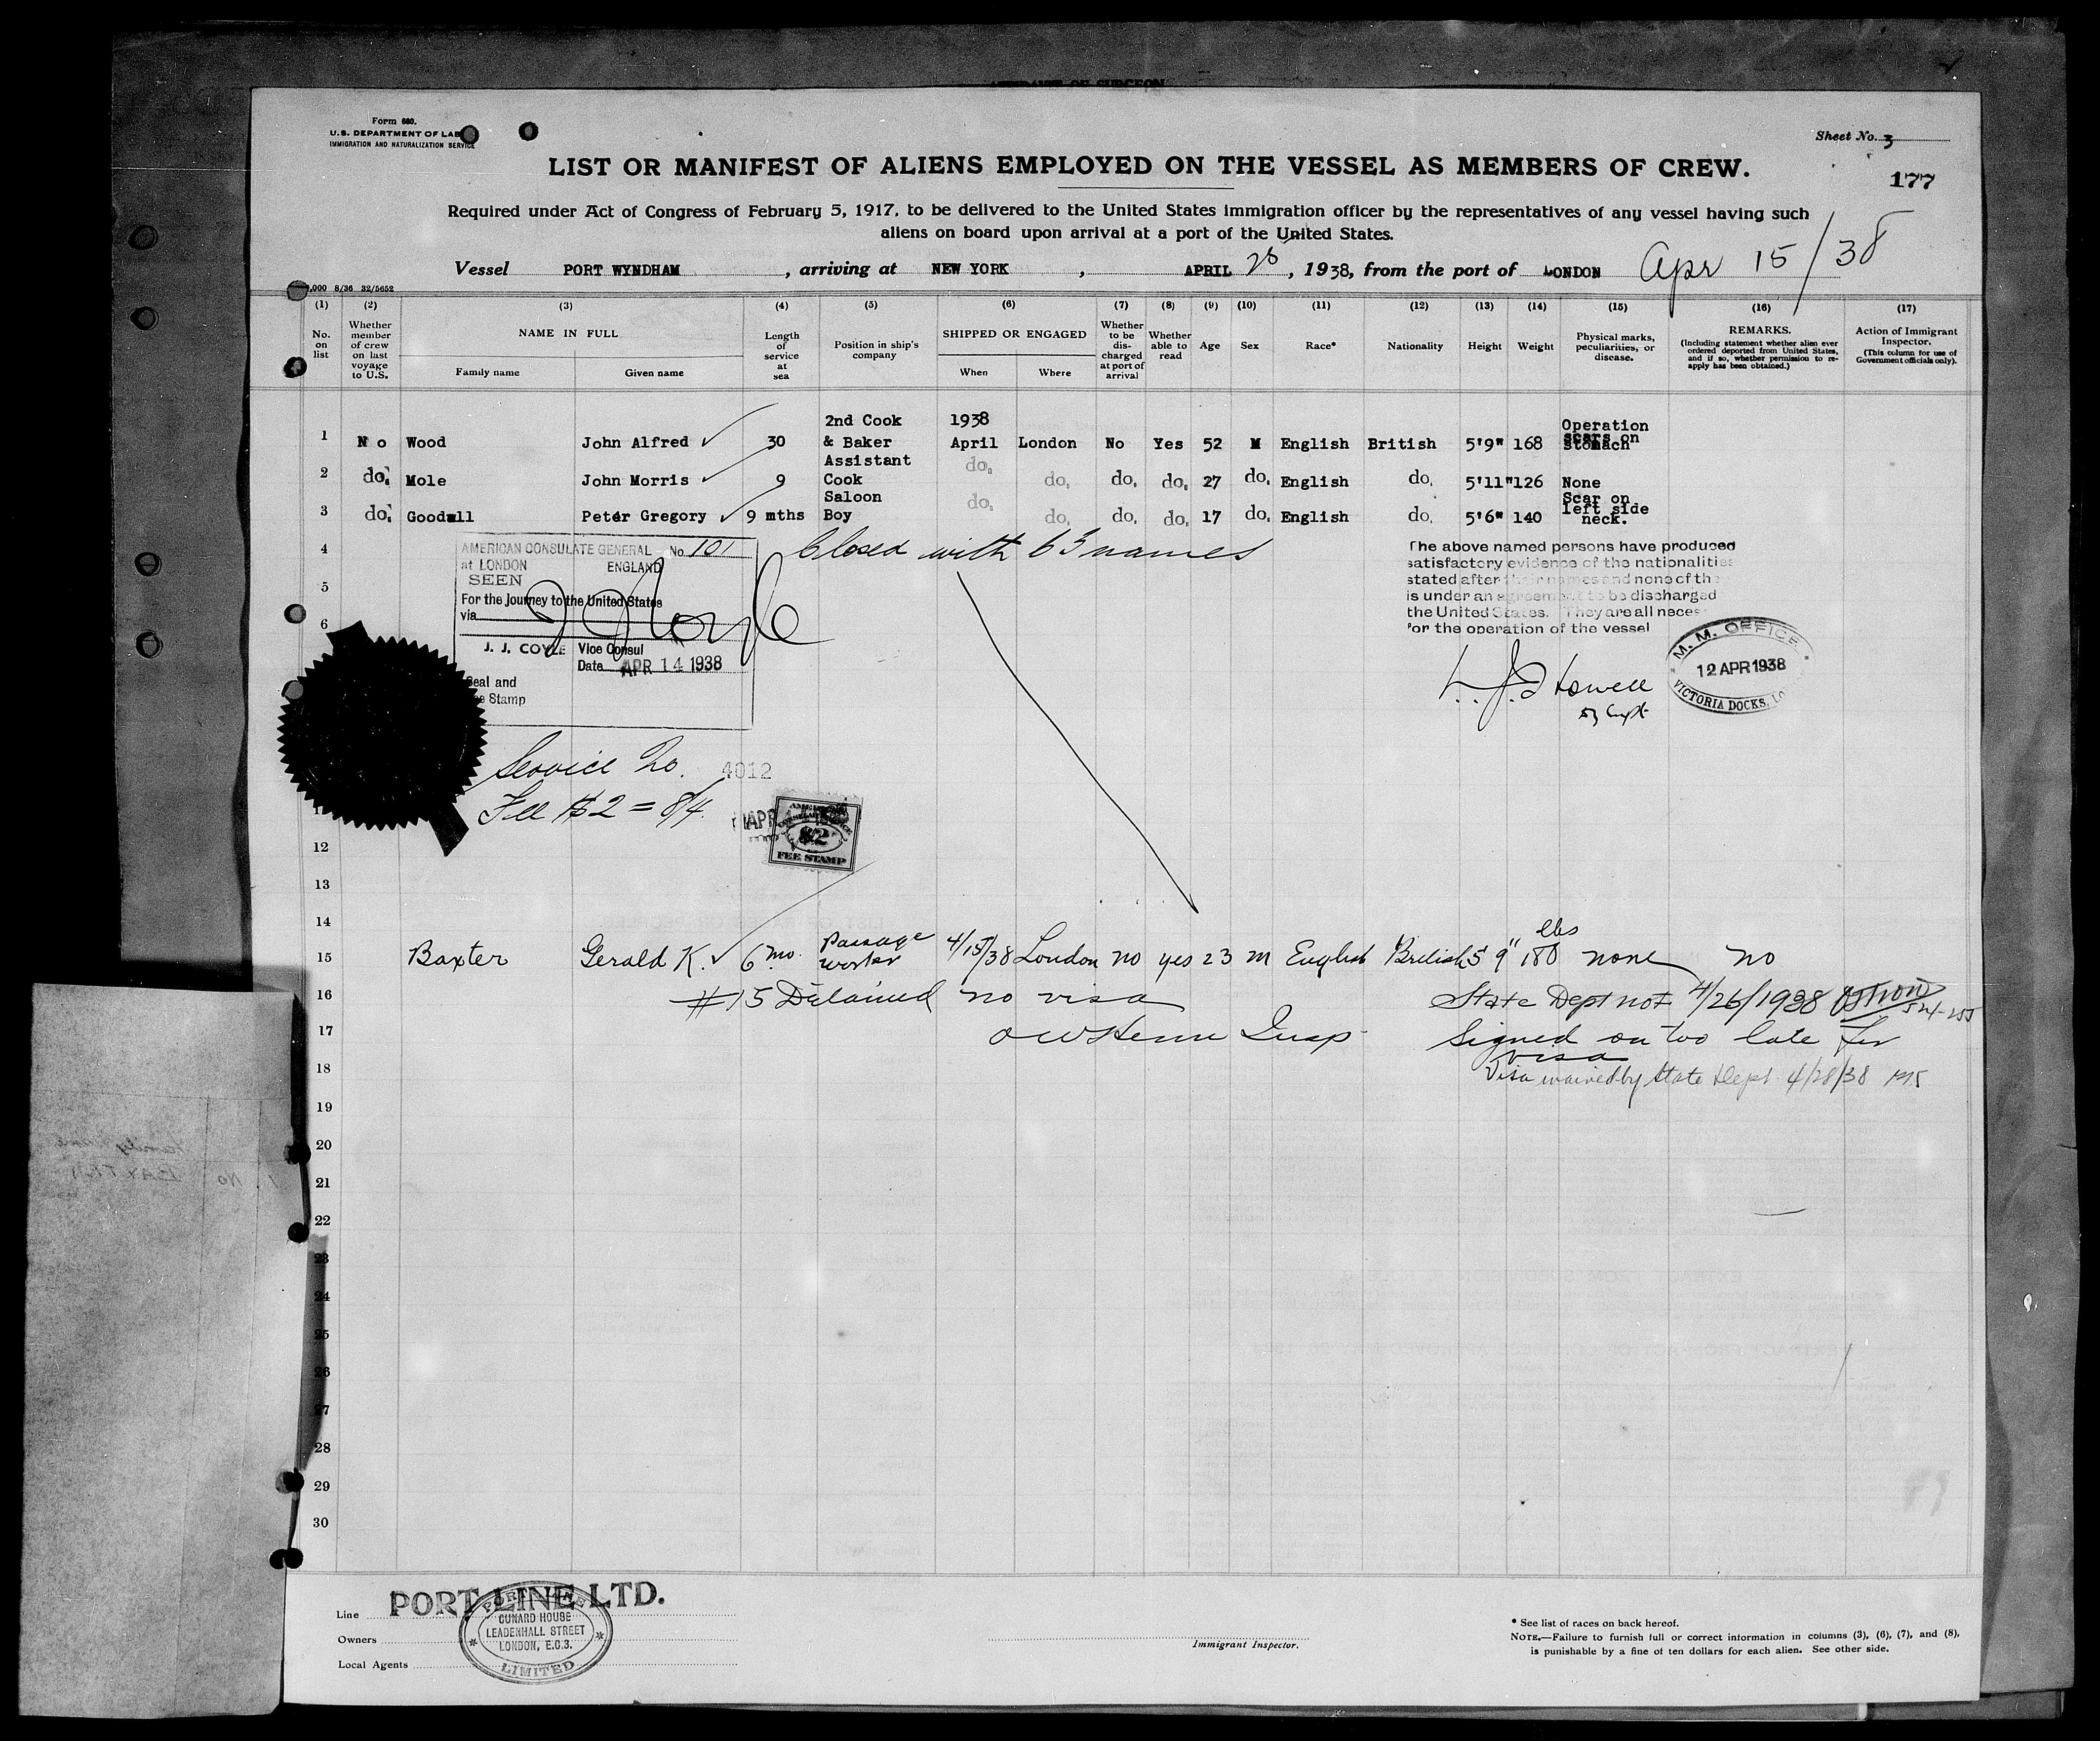 AFFIDAVIT OF SURGEON
Form 680.
U.S. DEPARTMENT OF LAB
IMMIGRATION AND NATURALIZATION SERVICE
Sheet No. 3
LIST OR MANIFEST OF ALIENS EMPLOYED ON THE VESSEL AS MEMBERS OF CREW.
177
Required under Act of Congress of February 5, 1917, to be delivered to the United States immigration officer by the representatives of any vessel having such
aliens on board upon arrival at a port of the United States.
Vessel PORT WYNDHAM, arriving at NEW YORK, APRIL 28, 1938, from the port of LONDON Apr 15/38
,000 8/36 32/5652
(1) (2) (3) (4) (5) (6) (7) (8) (9) (10) (11) (12) (13) (14) (15) (16) (17)
No. on list
Whether member of crew on last voyage to U.S.
NAME IN FULL
Family name Given name
Length of service at sea
Position in ship's company
SHIPPED OR ENGAGED
When Where
Whether to be discharged at port of arrival
Whether able to read
Age
Sex
Race*
Nationality
Height
Weight
Physical marks, peculiarities, or disease.
REMARKS.
(Including statement whether alien ever ordered deported from United States, and if so, whether permission to reapply has been obtained.)
Action of Immigrant Inspector.
(This column for use of Government officials only).
1 No Wood John Alfred 30 2nd Cook & Baker 1938 April London No Yes 52 M English British 5'9" 168 Operation scars on stomach
2 do. Mole John Morris 9 Assistant Cook do. do. do. do. 27 do. English do. 5'11" 126 None
3 do. Goodall Peter Gregory 9 mths Saloon Boy do. do. do. do. 17 do. English do. 5'6" 140 Scar on left side neck.
4 Closed with 63 names
5
6
AMERICAN CONSULATE GENERAL No. 101
at LONDON ENGLAND
SEEN
For the Journey to the United States
via
J. J. COYLE Vice Consul
Date APR 14 1938
Seal and
Stamp
The above named persons have produced
satisfactory evidence of the nationalities
stated after their names and none of the
is under an agreement to be discharged
the United States. They are all neces
for the operation of the vessel
M. M. OFFICE
12 APR 1938
VICTORIA DOCKS, LO
Service No. 4012
Fee $2 = 8/4.
APR
$2
FEE STAMP
12
13
14
15 Baxter Gerald K. 6 mo. Passage worker 4/15/38 London no yes 23 m English British 5' 9" 180 lbs none no
16 #15 Detained no visa State Dept not 4/26/1938
17 Insp. Signed on too late for
visa
18 Visa waived by State Dept. 4/28/38
19
20
21
22
23
24
25
26
27
28
29
30
Line PORT LINE LTD.
Owners
Local Agents
PORT LINE
CUNARD HOUSE
LEADENHALL STREET
LONDON, E.C.3.
LIMITED
Immigrant Inspector.
* See list of races on back hereof.
NOTE.—Failure to furnish full or correct information in columns (3), (6), (7), and (8),
is punishable by a fine of ten dollars for each alien. See other side.